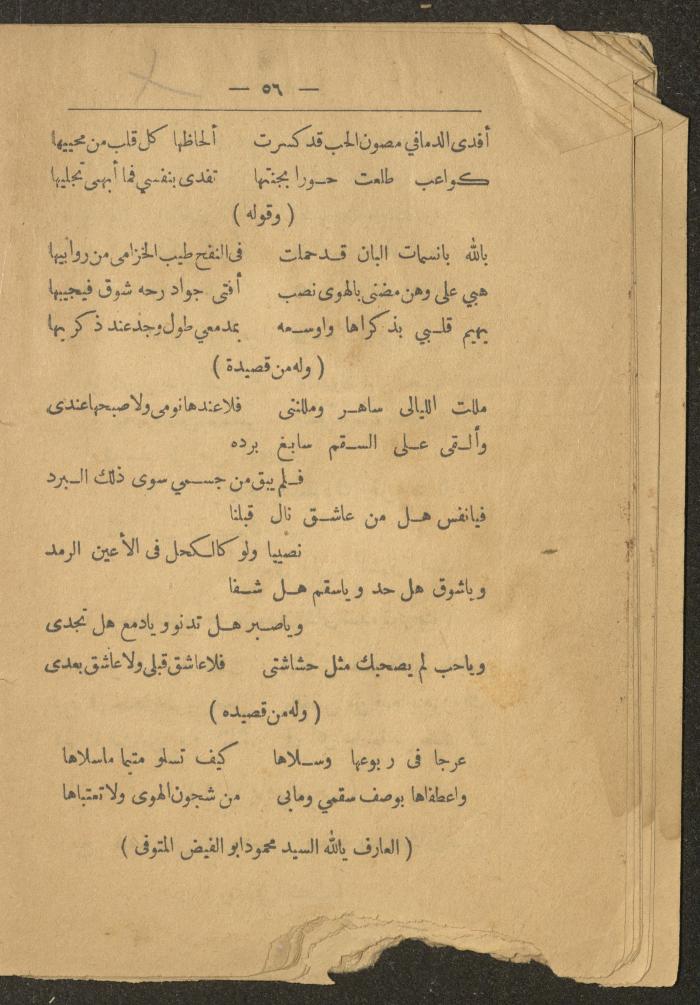 — ٥٦ —
أفدى الدمافي مصون الحب قد كسرت ألحاظها كل قلب من محبيها
كواعب طلعت حورا بجنتها تفدى بنفسي فما أبهى تجليها
( وقوله )
بالله يانسمات البان قد حملت فى النفح طيب الخزامى من روابيها
هبي على وهن مضنى بالهوى نصب أفتى جواد رحه شوق فيجيبها
يهيم قلبي بذكراها واوسعه بمدمعي طول وجد عند ذكريها
( وله من قصيدة )
مللت الليالى ساهر ومللننى فلا عندها نومى ولا صبحها عندى
وألقى على السقم سابغ برده
فلم يبق من جسمي سوى ذلك البرد
فيانفس هل من عاشق نال قبلنا
نصيبا ولو كالكحل فى الأعين الرمد
وياشوق هل حد وياسقم هل شفا
وياصبر هل تدنو ويادمع هل تجدى
وياحب لم يصحبك مثل حشاشتى فلا عاشق قبلى ولا عاشق بعدى
( وله من قصيده )
عرجا فى ربوعها وسلاها كيف تسلو متيما ماسلاها
واعطفاها بوصف سقمي ومابى من شجون الهوى ولا تعتباها
( العارف بالله السيد محمود ابو الفيض المتوفى )